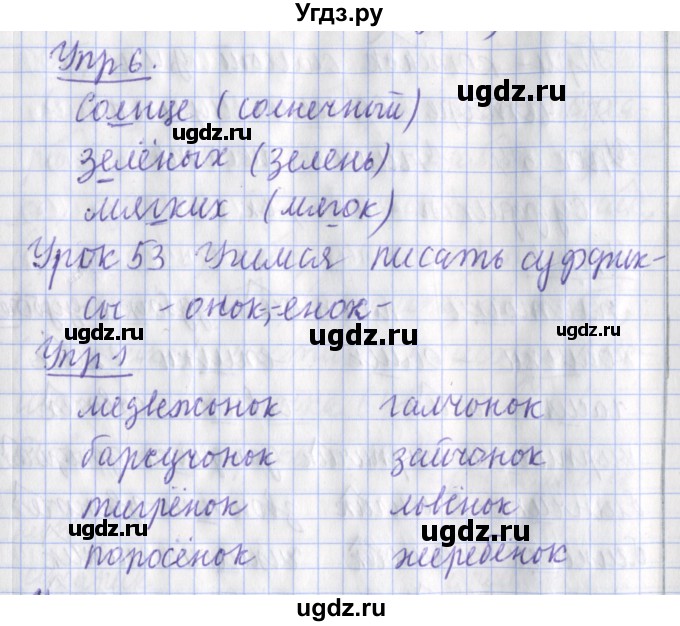 Угдз.ру
Упр 6.
Солнце (солнечный)
зелёных (зелень)
мягких (мягок)
Урок 53 Учимся писать суффик-
сы -онок-, -енок-
Упр 1
медвежонок галчонок
барсучонок зайчонок
тигрёнок львёнок
поросёнок жеребёнок
ugdz.ru
ugdz.ru
ugdz.ru
ugdz.ru
ugdz.ru
ugdz.ru
ugdz.ru
ugdz.ru
ugdz.ru
ugdz.ru